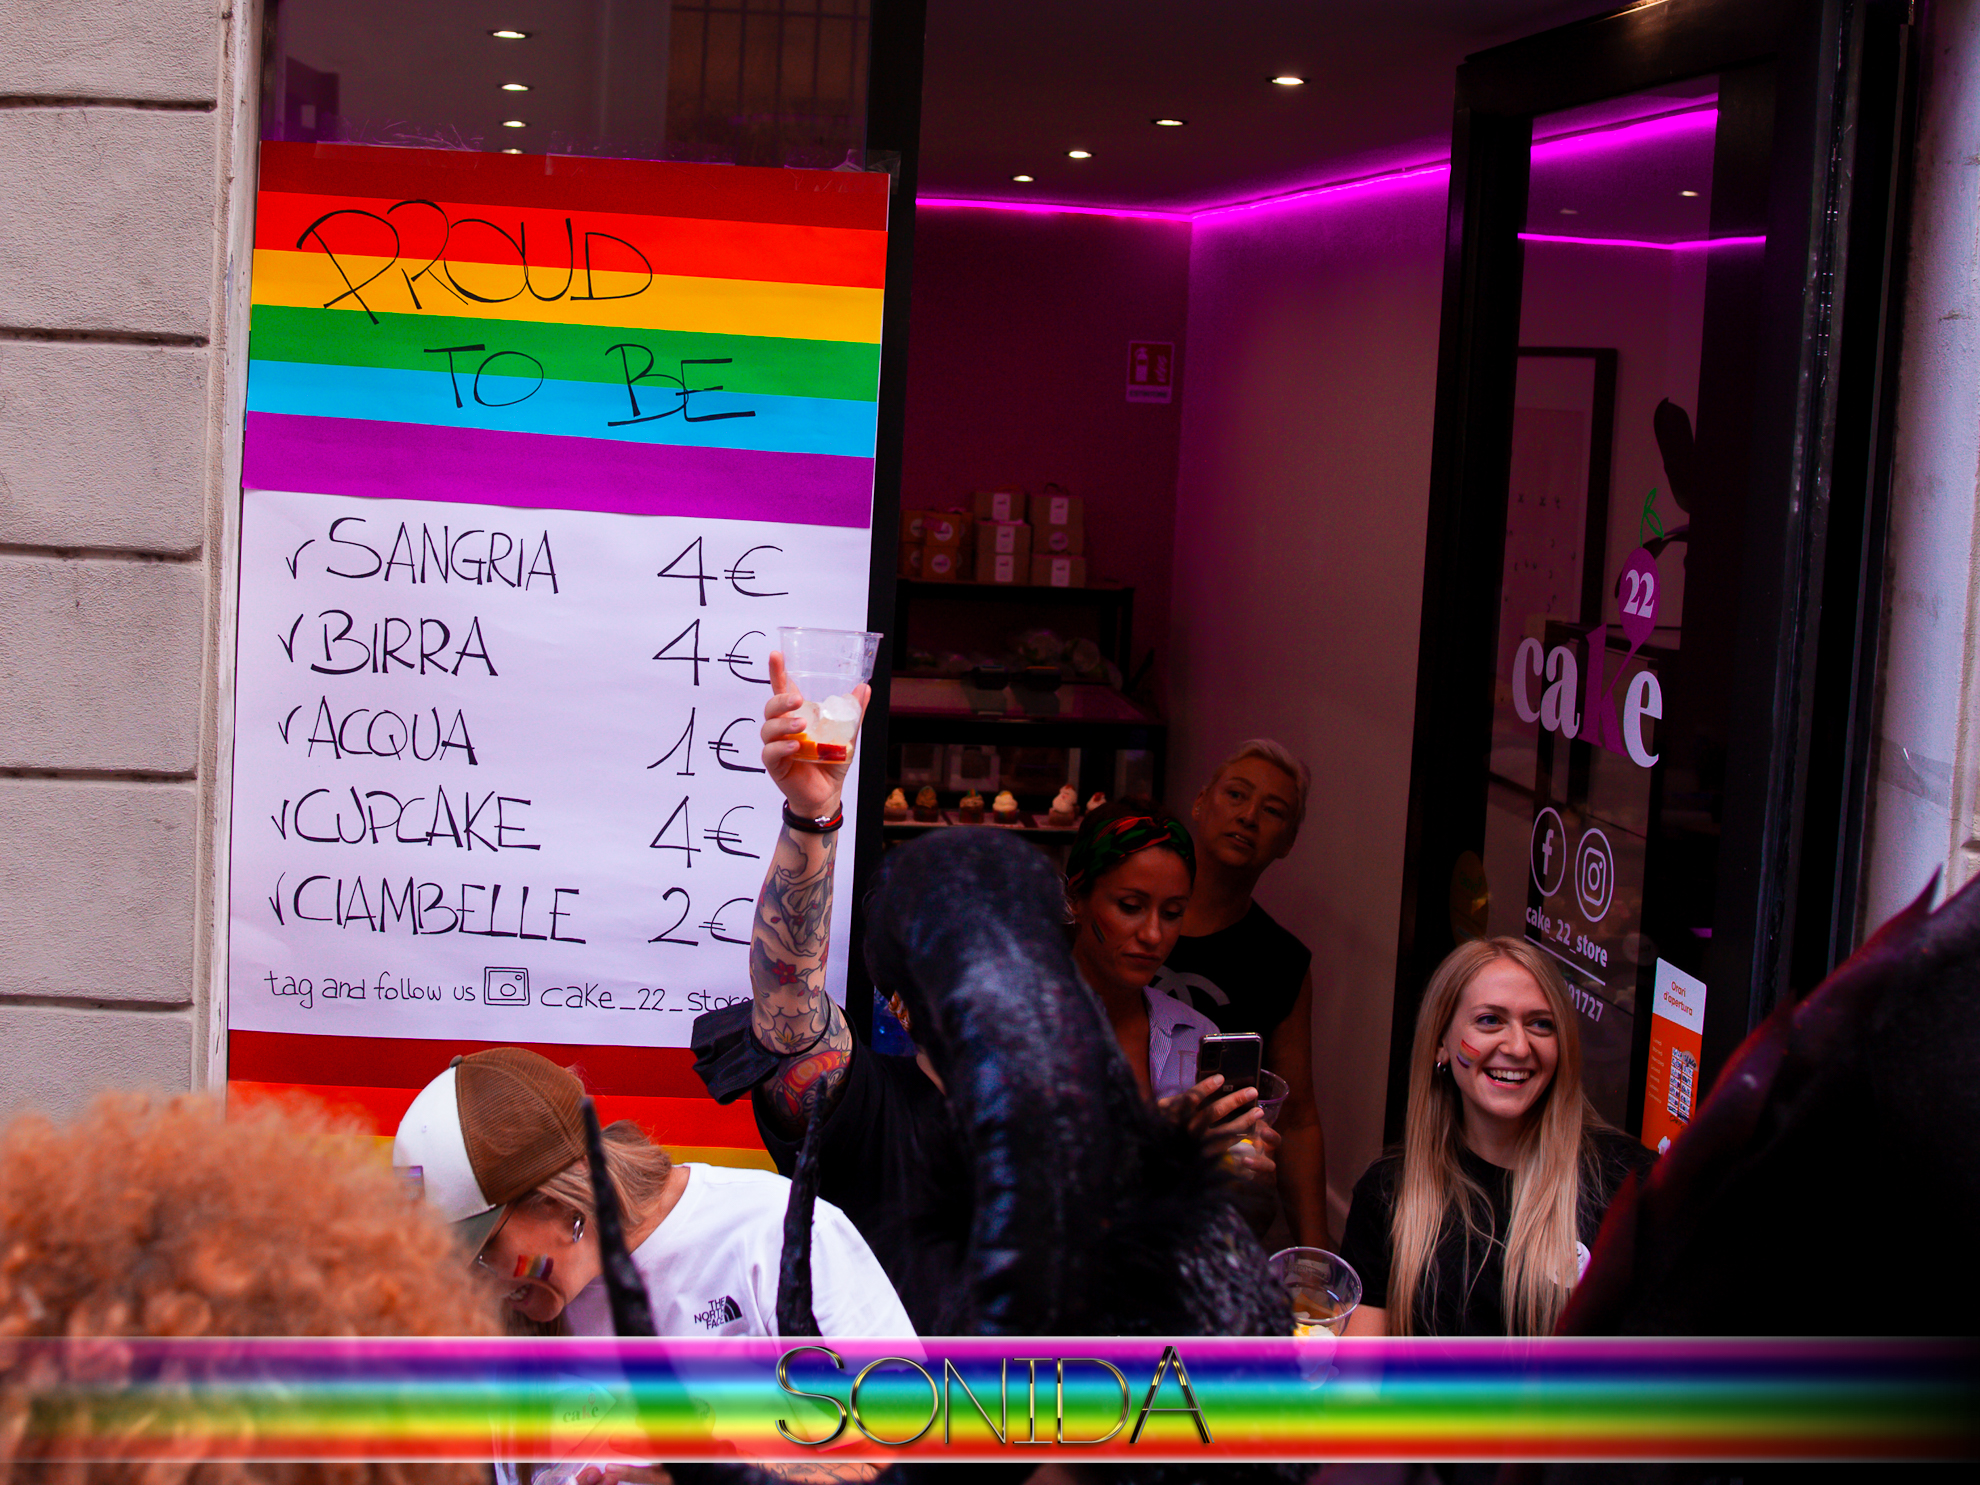 PROUD
TO BE
✓ SANGRIA 4€
✓ BIRRA 4€
✓ ACQUA 1€
✓ CUPCAKE 4€
✓ CIAMBELLE 2€
tag and follow us cake_22_store
22
cake
cake_22_store
01727
Orari
d'apertura
THE
NORTH
FACE
cake
SONIDA